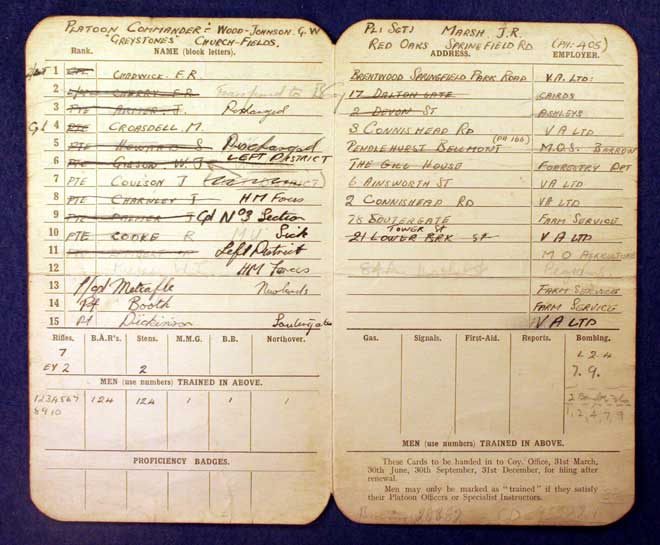 PLATOON COMMANDER:- WOOD-JOHNSON. G.W
"GREYSTONES" CHURCH-FIELDS.
Rank. NAME (block letters).
1 CHADWICK. F.R.
2 CHERRY F.R. Transferred to B Coy
3 PTE Discharged
4 CROASDELL. M.
5 PTE HOWARD S Discharged
6 PTE GIBSON. W.J. LEFT DISTRICT
7 PTE COULSON J
8 PTE CHARNLEY T HM Forces
9 PTE PALMER J Cpl No 3 Section
10 PTE COOKE R Sick
11 Left District
12 HM Forces
13 Metcalfe Newlands
14 Pt Booth
15 Pt Dickinson
Rifles. B.A.R's. Stens. M.M.G. B.B. Northover.
7
EY 2 2
MEN (use numbers) TRAINED IN ABOVE.
1234567 124 124 1 1 1
8910
PROFICIENCY BADGES.
PLT SGT: MARSH. J.R.
RED OAKS SPRINGFIELD RD (PH:-405)
ADDRESS. EMPLOYER.
BRENTWOOD SPRINGFIELD PARK ROAD V.A. LTD:
17 DALTON GATE CAIRDS
2 DEVON ST ASHLEYS
3 CONNISHEAD RD V A LTD
PENDLEHURST BELMONT (PH 166) M.O.S. BARROW
THE GILL HOUSE FORRESTRY DPT
6 AINSWORTH ST V A LTD
2 CONNISHEAD RD V A LTD
78 SOUTERGATE FARM SERVICE
TOWER ST
21 LOWER BRK ST V A LTD
M O AGRICULTURE
FARM SERVICE
FARM SERVICE
V A LTD
Gas. Signals. First-Aid. Reports. Bombing.
L 2-4
7. 9.
1, 2, 4, 7, 9
MEN (use numbers) TRAINED IN ABOVE.
These Cards to be handed in to Coy. Office, 31st March,
30th June, 30th September, 31st December, for filing after
renewal.
Men may only be marked as "trained" if they satisfy
their Platoon Officers or Specialist Instructors.